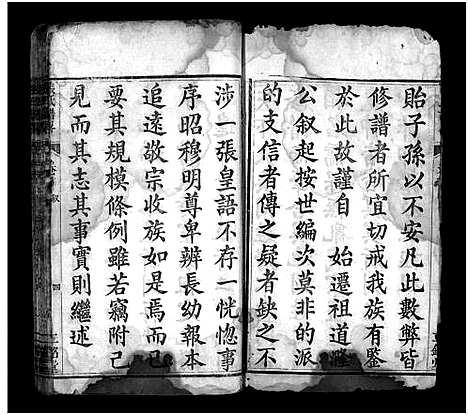 貽子孫以不安凡此數弊皆
修譜者所宜切戒我族有鑒
於此故謹自 始遷祖道隆
公叙起按世編次莫非的派
的支信者傳之疑者缺之不
涉一張皇語不存一恍惚事
序昭穆明尊卑辨長幼報本
追遠敬宗收族如是焉而已
要其規模條例雖若竊附己
見而其志其事實則繼述
四